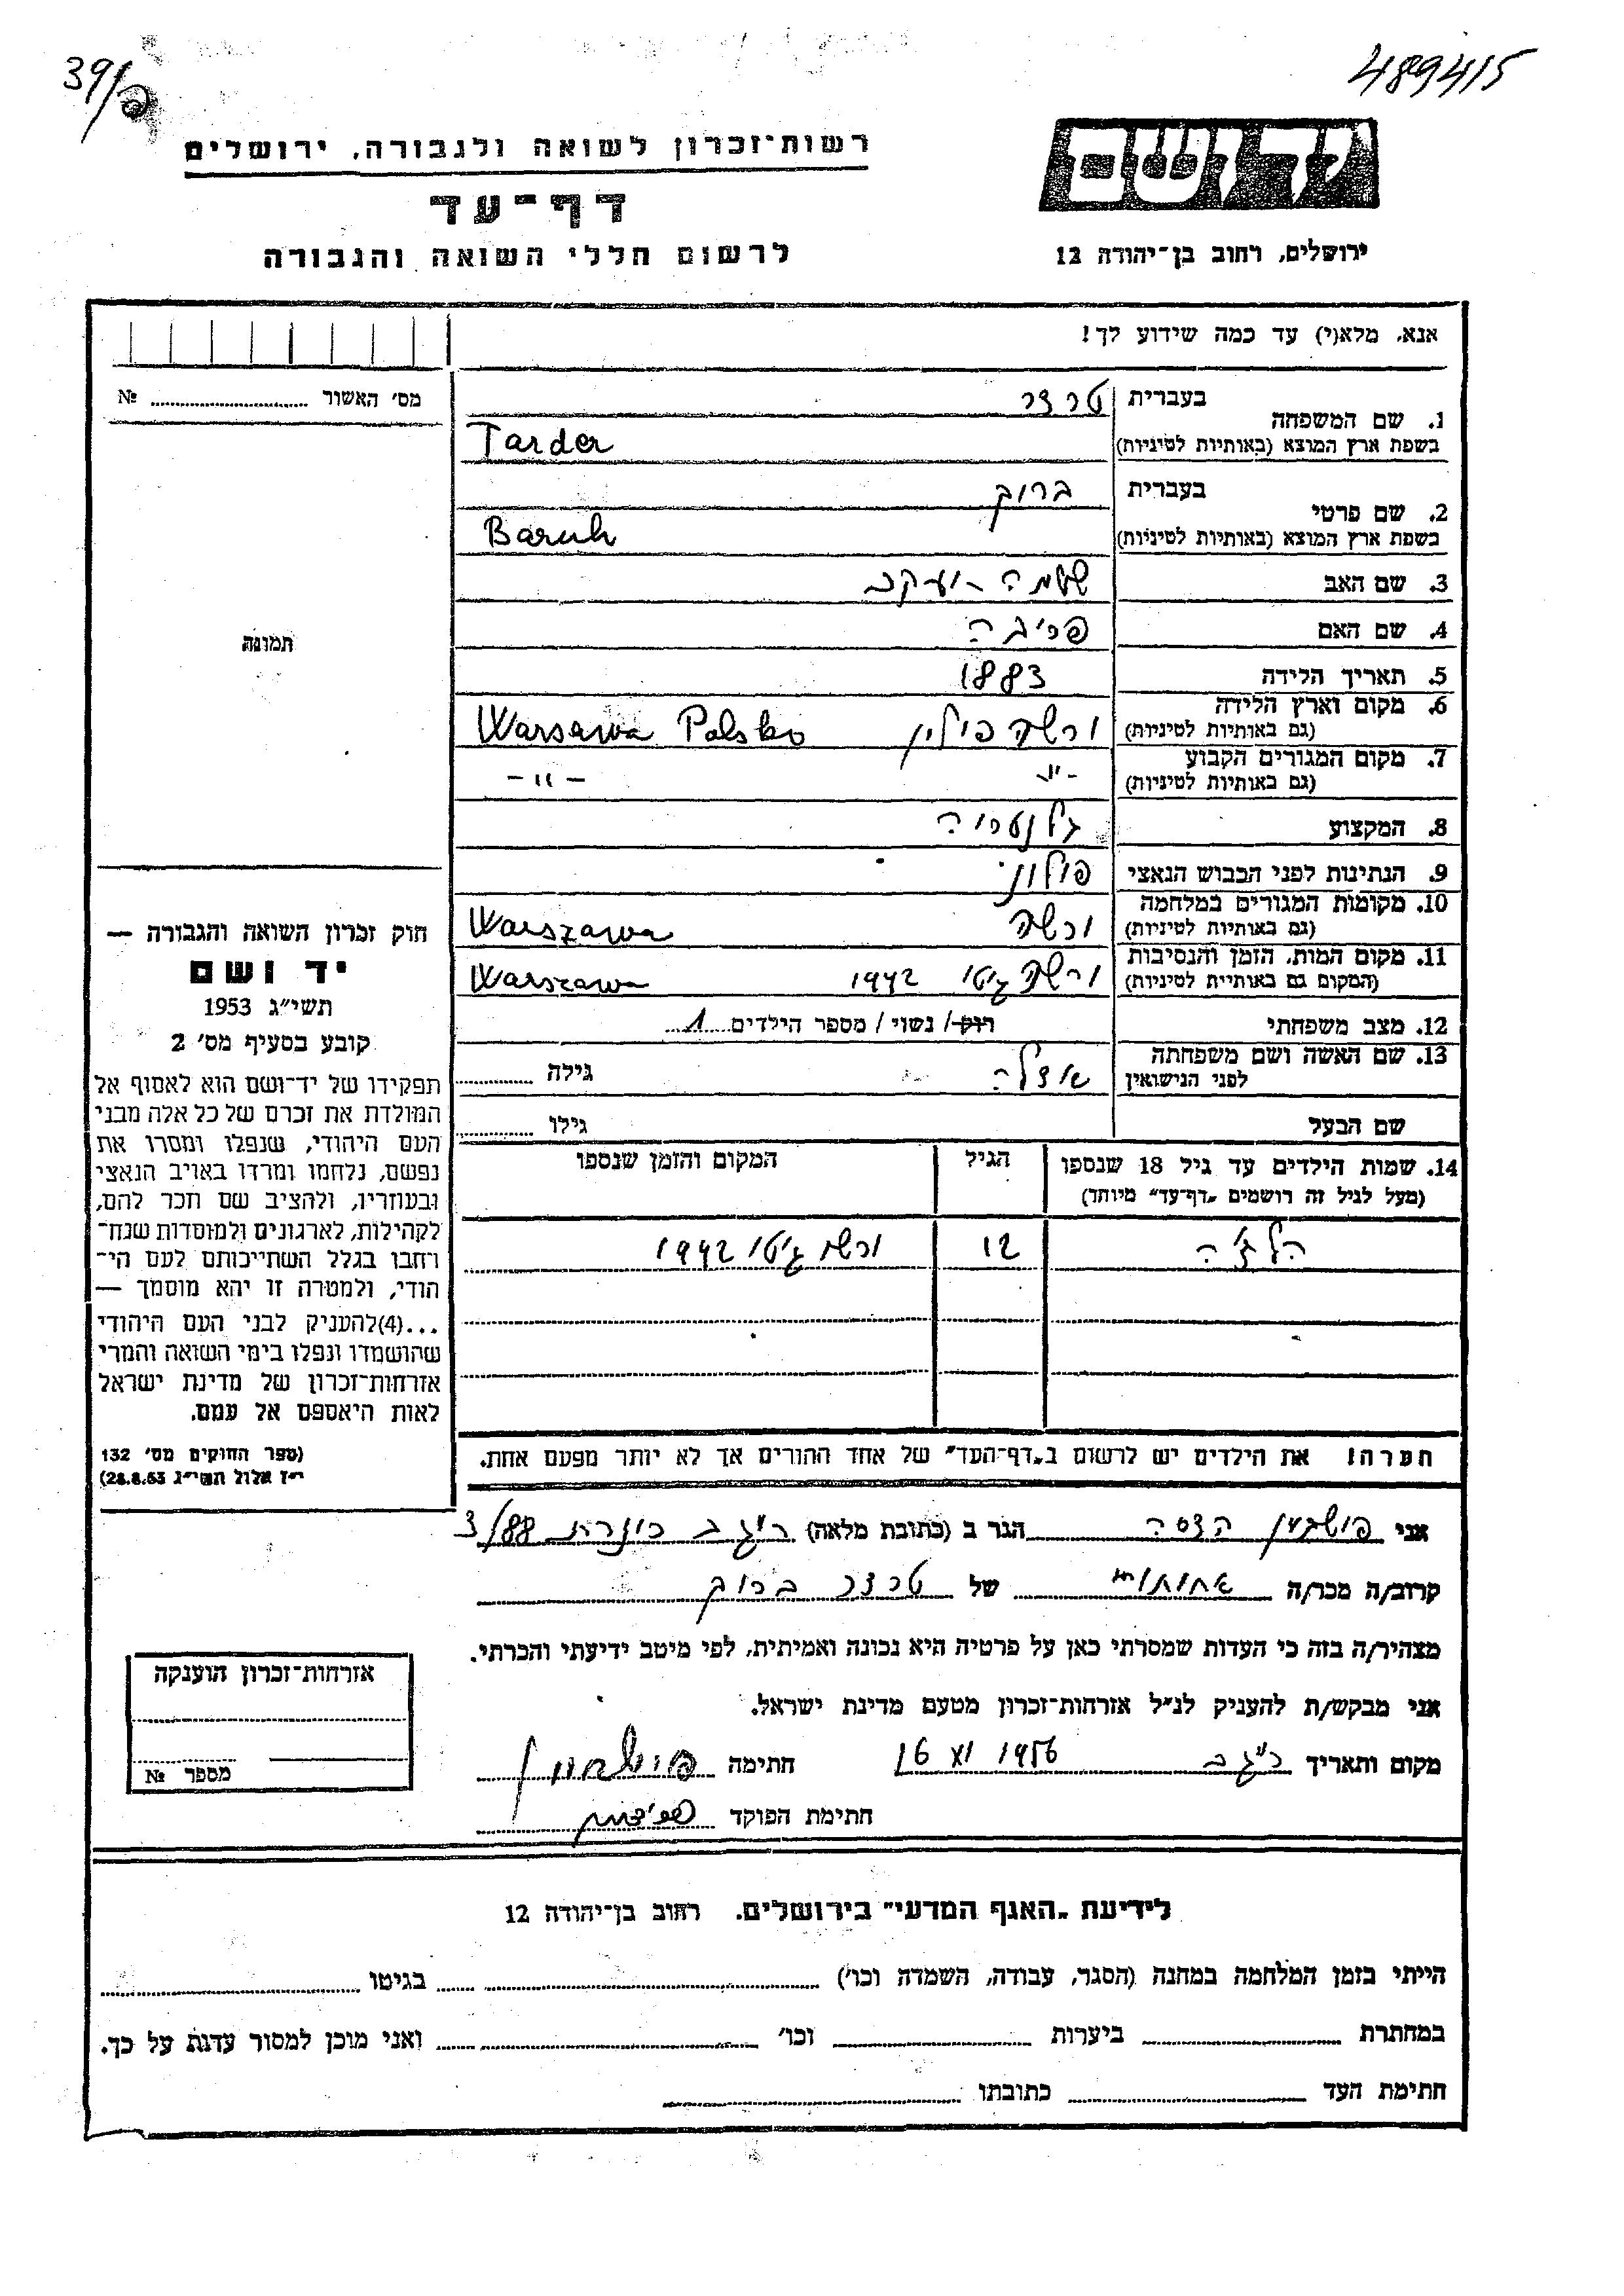 39/פ
489415
רשות־זכרון לשואה ולגבורה, ירושלים
דף־עד
לרשום חללי השואה והגבורה
יד ושם
ירושלים, רחוב בן־יהודה 12
אנא, מלא(י) עד כמה שידוע לך!
מס׳ האשור № 
1. שם המשפחה
בעברית טרדר
בשפת ארץ המוצא (באותיות לטיניות) Tarder
2. שם פרטי
בעברית ברוך
בשפת ארץ המוצא (באותיות לטיניות) Baruh
3. שם האב שלמה - יעקב
4. שם האם
5. תאריך הלידה 1883
6. מקום וארץ הלידה ורשה פולין Warsawa Polsko
(גם באותיות לטיניות)
7. מקום המגורים הקבוע -"- -"-
(גם באותיות לטיניות)
8. המקצוע גלנטריה
9. הנתינות לפני הכבוש הנאצי פולני
10. מקומות המגורים במלחמה ורשה Warszawa
(גם באותיות לטיניות)
11. מקום המות, הזמן והנסיבות ורשה גיטו 1942 Warszawa
(המקום גם באותיית לטיניות)
12. מצב משפחתי רוק/ נשוי / מספר הילדים 1
13. שם האשה ושם משפחתה אדלה גילה
לפני הנישואין
שם הבעל גילו
14. שמות הילדים עד גיל 18 שנספו הגיל המקום והזמן שנספו
(מעל לגיל זה רושמים „דף־עד" מיוחד)
12 ורשה גיטו 1942
הערה! את הילדים יש לרשום ב„דף־העד" של אחד ההורים אך לא יותר מפעם אחת.
תמונה
חוק זכרון השואה והגבורה —
יד ושם
תשי״ג 1953
קובע בסעיף מס׳ 2
תפקידו של יד־ושם הוא לאסוף אל
המולדת את זכרם של כל אלה מבני
העם היהודי, שנפלו ומסרו את
נפשם, נלחמו ומרדו באויב הנאצי
ובעוזריו, ולהציב שם וזכר להם,
לקהילות, לארגונים ולמוסדות שנח־
רחבו בגלל השתייכותם לעם הי־
הודי, ולמטרה זו יהא מוסמך —
...(4)להעניק לבני העם היהודי
שהושמדו ונפלו בימי השואה והמרי
אזרחות־זכרון של מדינת ישראל
לאות היאספם אל עמם.
(ספר החוקים מס׳ 132
י״ז אלול תשי״ג 28.8.53)
אני הדסה הגר ב (כתובת מלאה) כנרת 88/3
קרוב/ה מכר/ה אחותו של טרדר ברוך
מצהיר/ה בזה כי העדות שמסרתי כאן על פרטיה היא נכונה ואמיתית, לפי מיטב ידיעתי והכרתי.
אני מבקש/ת להעניק לנ״ל אזרחות־זכרון מטעם מדינת ישראל.
מקום ותאריך 16 XI 1956 חתימה
חתימת הפוקד
אזרחות־זכרון הוענקה
מספר №
לידיעת „האגף המדעי" בירושלים. רחוב בן־יהודה 12
הייתי בזמן המלחמה במחנה (הסגר, עבודה, השמדה וכו׳) בגיטו
במחתרת ביערות וכו׳ ואני מוכן למסור עדות על כך.
חתימת העד כתובתו